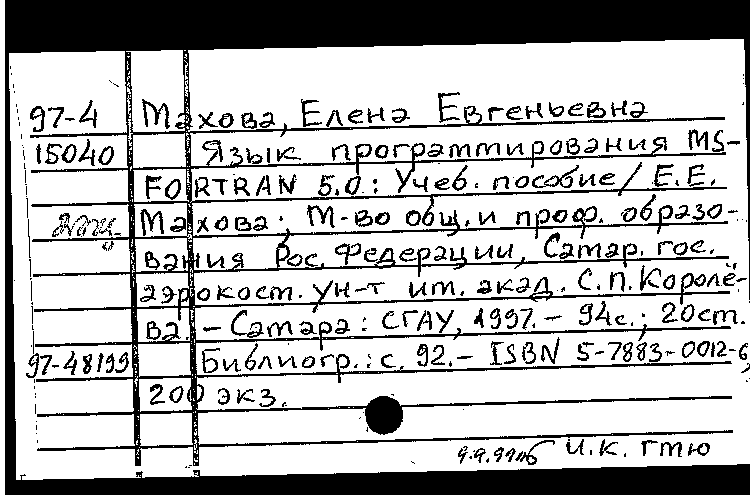 97-4 Махова, Елена Евгеньевна
15040 Язык программирования MS-
FORTRAN 5.0: Учеб. пособие / Е.Е.
Махова; М-во общ. и проф. образо-
вания Рос. Федерации, Самар. гос.
аэрокосм. ун-т им. акад. С.П. Королё-
ва. - Самара: СГАУ, 1997. - 94с.; 20см.
97-48199 Библиогр.: с. 92. - ISBN 5-7883-0012-6,
200 экз.
И.К. ГМЮ